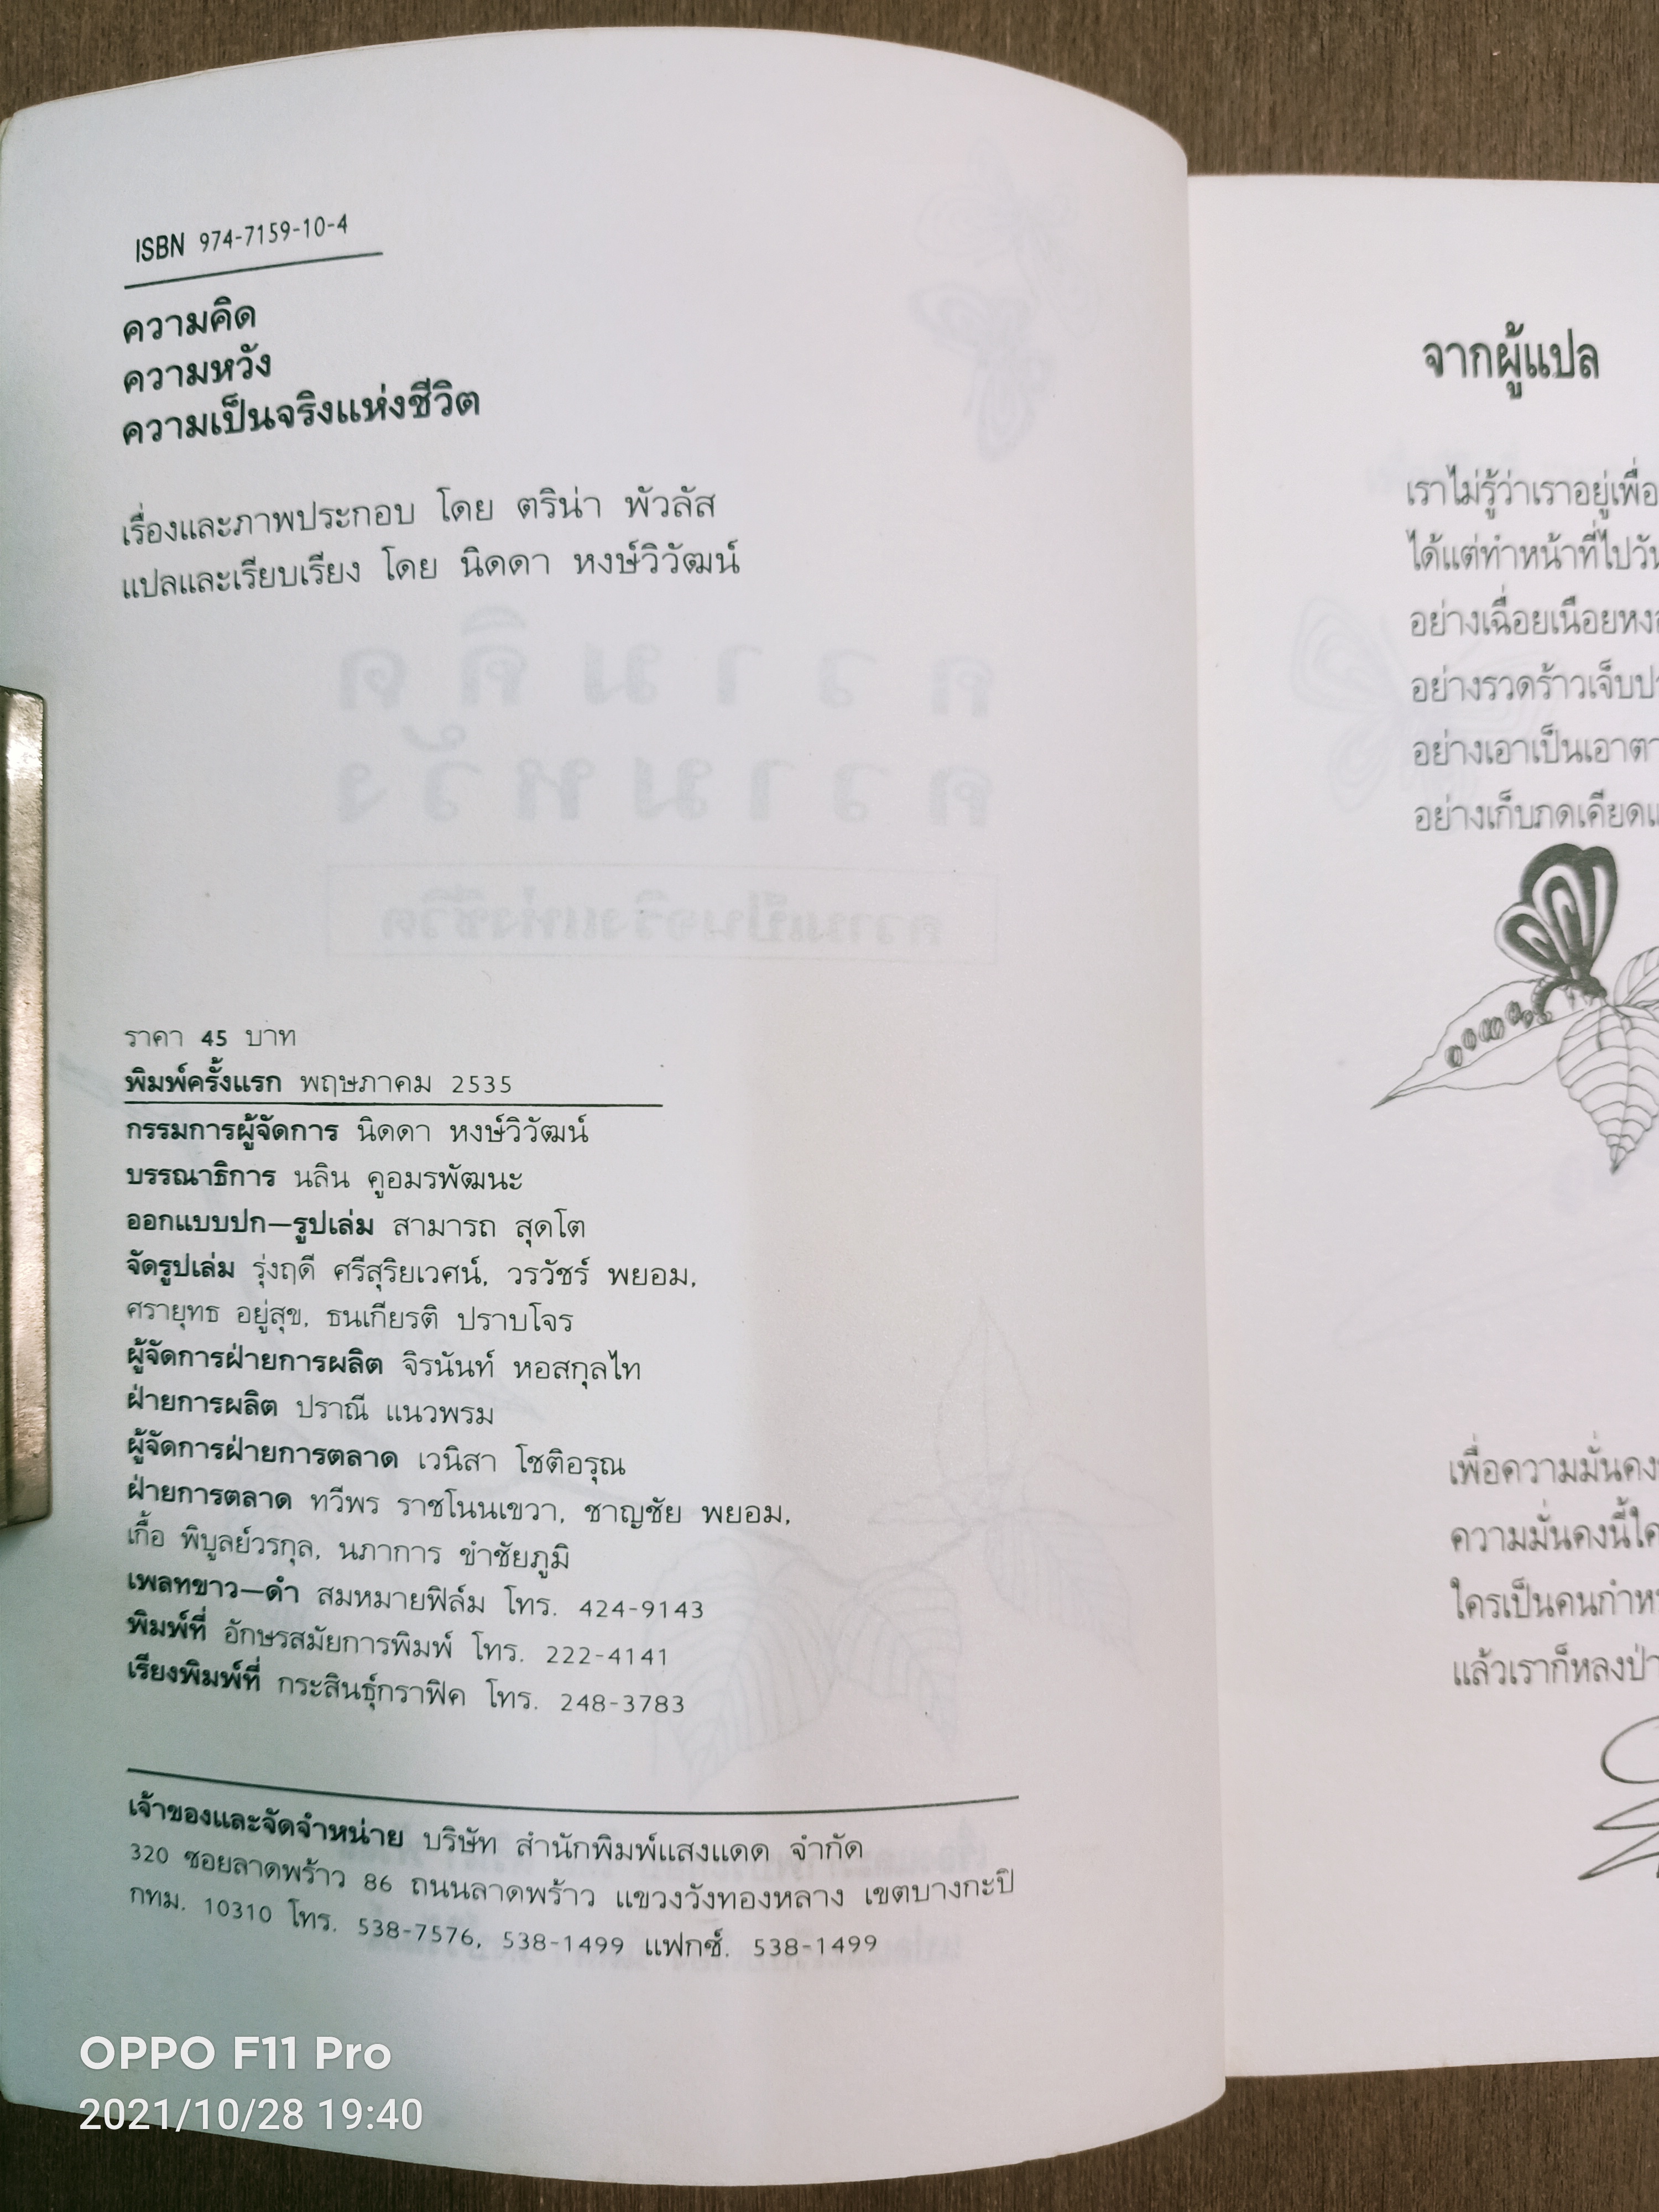 ISBN 974-7159-10-4
ความคิด
ความหวัง
ความเป็นจริงแห่งชีวิต
เรื่องและภาพประกอบ โดย ตริน่า พัวลัส
แปลและเรียบเรียง โดย นิดดา หงษ์วิวัฒน์
ราคา 45 บาท
พิมพ์ครั้งแรก พฤษภาคม 2535
กรรมการผู้จัดการ นิดดา หงษ์วิวัฒน์
บรรณาธิการ นลิน คูอมรพัฒนะ
ออกแบบปก—รูปเล่ม สามารถ สุดโต
จัดรูปเล่ม รุ่งฤดี ศรีสุริยเวศน์, วรวัชร์ พยอม,
ศรายุทธ อยู่สุข, ธนเกียรติ ปราบโจร
ผู้จัดการฝ่ายการผลิต จิรนันท์ หอสกุลไท
ฝ่ายการผลิต ปราณี แนวพรม
ผู้จัดการฝ่ายการตลาด เวนิสา โชติอรุณ
ฝ่ายการตลาด ทวีพร ราชโนนเขวา, ชาญชัย พยอม,
เกื้อ พิบูลย์วรกุล, นภาการ ขำชัยภูมิ
เพลทขาว—ดำ สมหมายฟิล์ม โทร. 424-9143
พิมพ์ที่ อักษรสมัยการพิมพ์ โทร. 222-4141
เรียงพิมพ์ที่ กระสินธุ์กราฟิค โทร. 248-3783
เจ้าของและจัดจำหน่าย บริษัท สำนักพิมพ์แสงแดด จำกัด
320 ซอยลาดพร้าว 86 ถนนลาดพร้าว แขวงวังทองหลาง เขตบางกะปิ
กทม. 10310 โทร. 538-7576, 538-1499 แฟกซ์. 538-1499
จากผู้แปล
เราไม่รู้ว่าเราอยู่เพื่อ
ได้แต่ทำหน้าที่ไปวัน
อย่างเฉื่อยเนือยหง
อย่างรวดร้าวเจ็บป
อย่างเอาเป็นเอาตา
อย่างเก็บกดเคียดแ
เพื่อความมั่นคง
ความมั่นคงนี้ใค
ใครเป็นคนกำห
แล้วเราก็หลงป่า
OPPO F11 Pro
2021/10/28 19:40